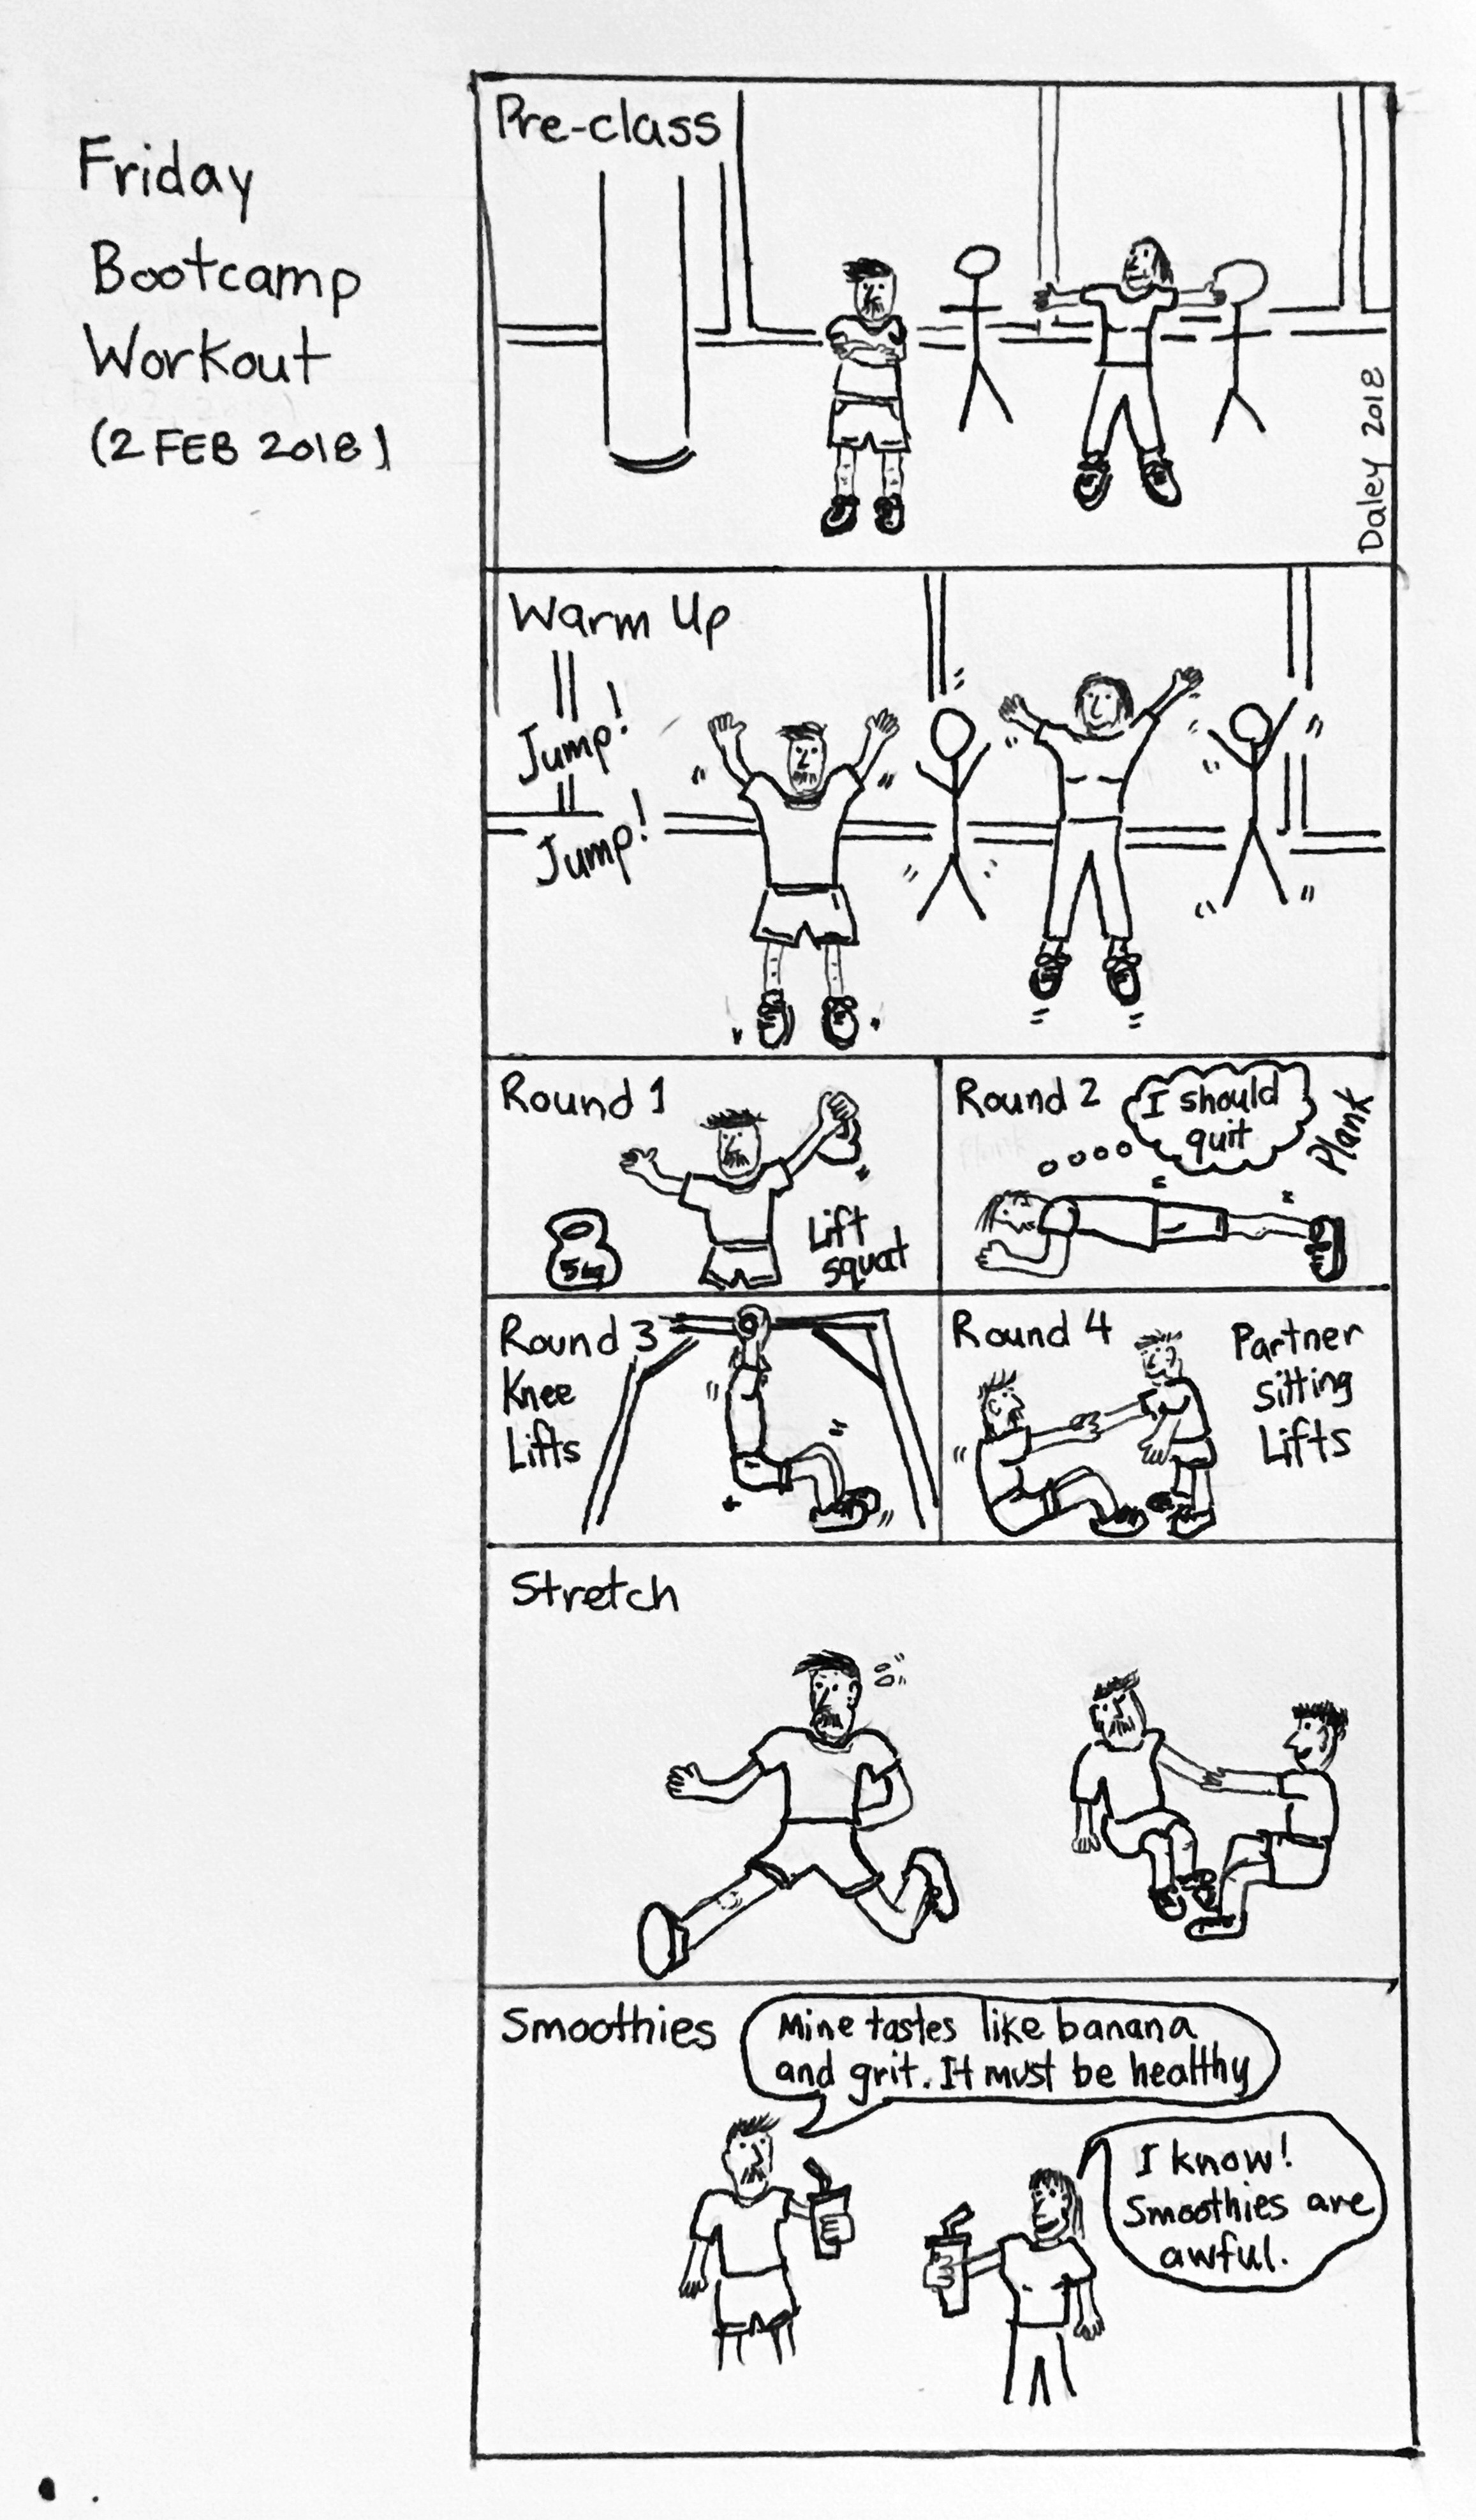 Friday
Bootcamp
Workout
(2 FEB 2018)
Pre-class
Daley 2018
Warm Up
Jump!
Jump!
Round 1
5kg
Lift
squat
Round 2
I should
quit
Plank
Round 3
Knee
Lifts
Round 4
Partner
Sitting
Lifts
Stretch
Smoothies
Mine tastes like banana
and grit. It must be healthy
I know!
Smoothies are
awful.